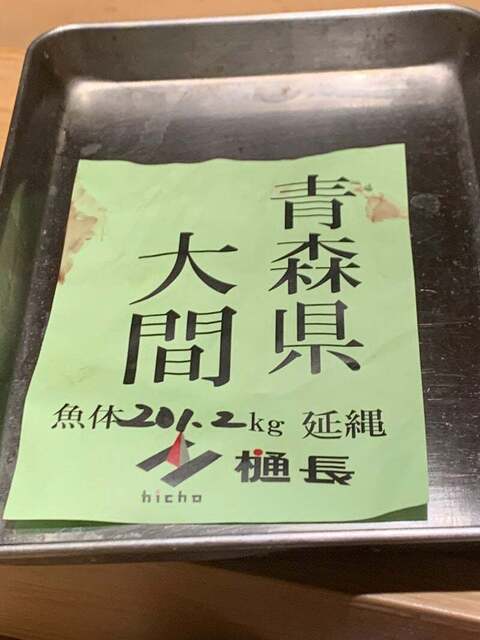 青森県
大間
魚体201.2kg 延縄
hicho 樋長